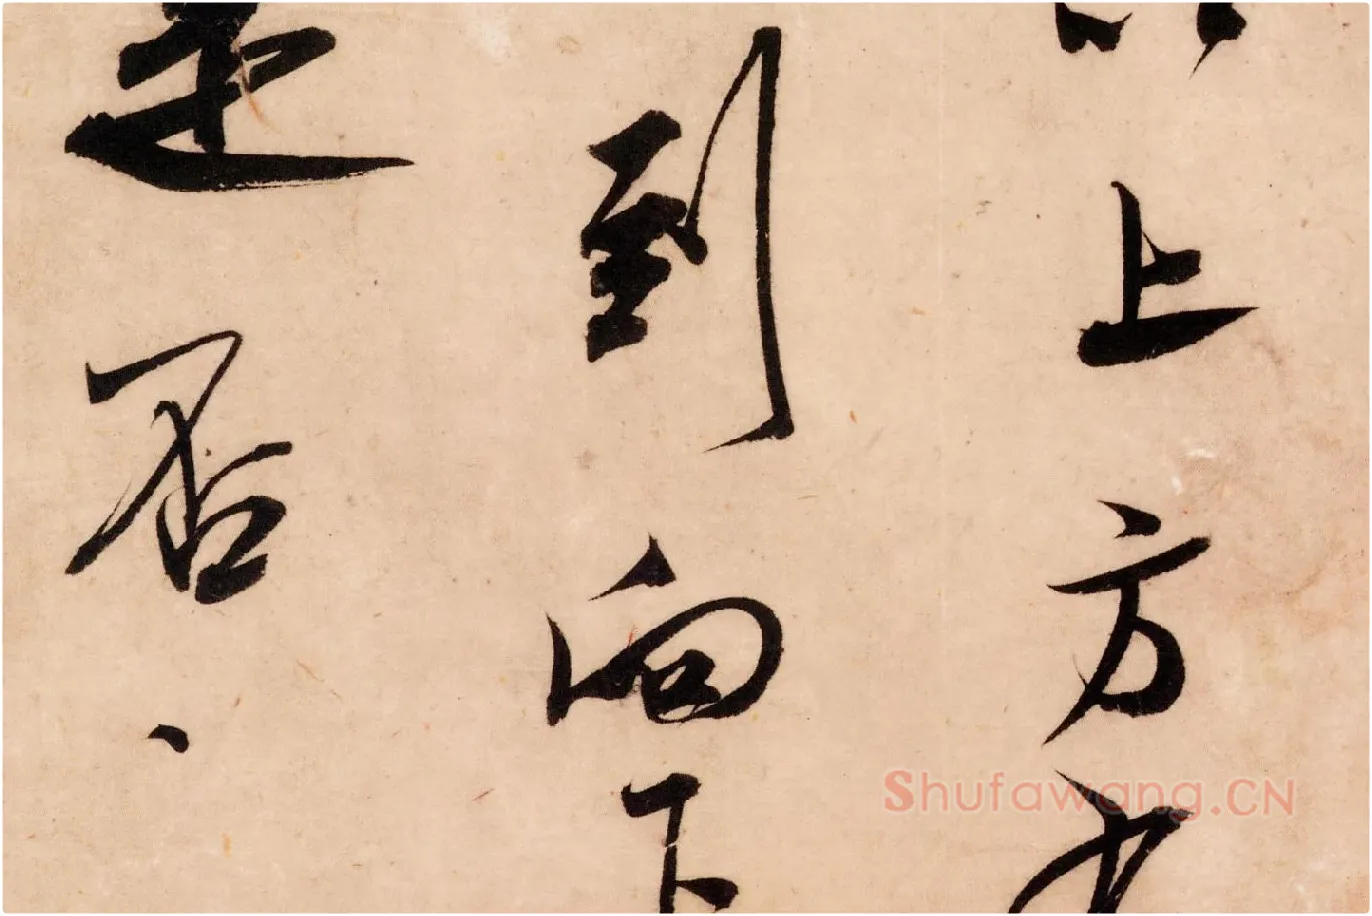 上方
到向下
是否
Shufawang.CN